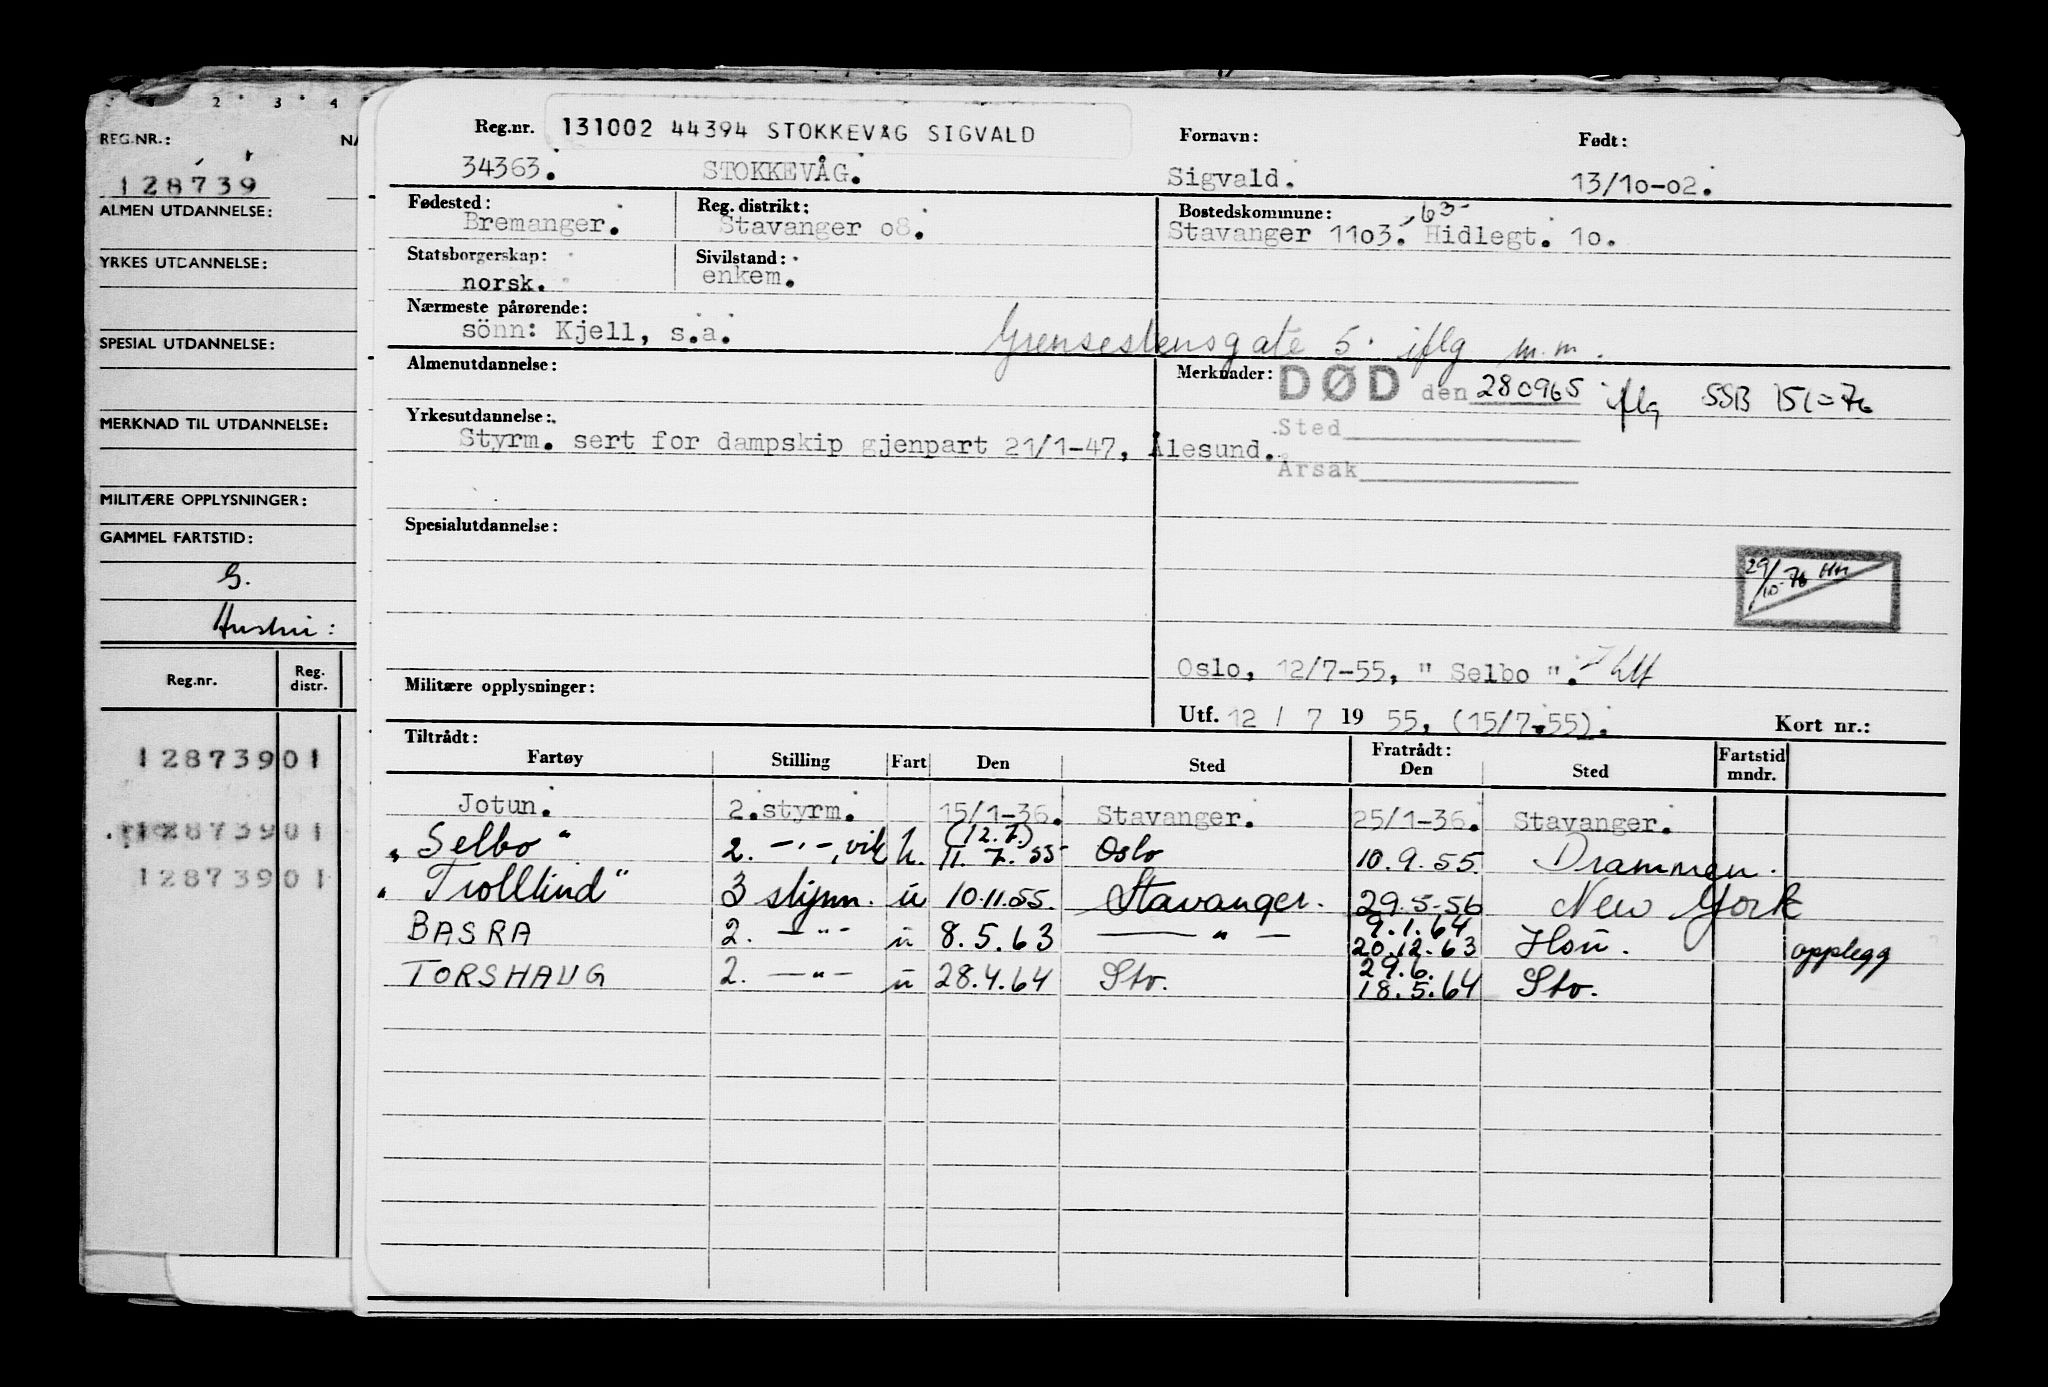 2 3 4
REG.NR.: NA
128739
ALMEN UTDANNELSE:
YRKES UTDANNELSE:
SPESIAL UTDANNELSE:
MERKNAD TIL UTDANNELSE:
MILITÆRE OPPLYSNINGER:
GAMMEL FARTSTID:
G.
Hustru:
Reg.nr. Reg. distr.
128739 01
128739 01
128739 01
Reg.nr. 131002 44394 STOKKEVÅG SIGVALD Fornavn: Født:
34363. STOKKEVÅG. Sigvald. 13/10-02.
Fødested: Reg. distrikt: Bostedskommune: 63-
Bremanger. Stavanger 08. Stavanger 1103. Hidlegt. 10.
Statsborgerskap: Sivilstand:
norsk. enkem.
Nærmeste pårørende:
sönn: Kjell, s.a. Grensestensgate 5. iflg m.m.
Almenutdannelse: Merknader: DØD den 280965 iflg SSB 151=76
Yrkesutdannelse: Sted
Styrm. sert for dampskip gjenpart 21/1-47, Ålesund.
Årsak
Spesialutdannelse:
29/10-76 HM
Oslo, 12/7-55, " Selbo ".
Militære opplysninger:
Utf. 12 / 7 19 55, (15/7-55). Kort nr.:
Tiltrådt: Fratrådt: Fartstid
Fartøy Stilling Fart Den Sted Den Sted mndr.
Jotun. 2.styrm. 15/1-36. Stavanger. 25/1-36. Stavanger.
(12.7.)
„Selbo" 2. -"-, vik h. 11. 7. 55 Oslo 10.9.55. Drammen.
"Trollind" 3 styrm. u 10.11.55. Stavanger. 29.5.56 New York
9.1.64
BASRA 2. -"- u 8.5.63 -"- 20.12.63 Hsu. opplegg
29.6.
TORSHAUG 2. -"- u 28.4.64 Stv. 18.5.64 Stv.